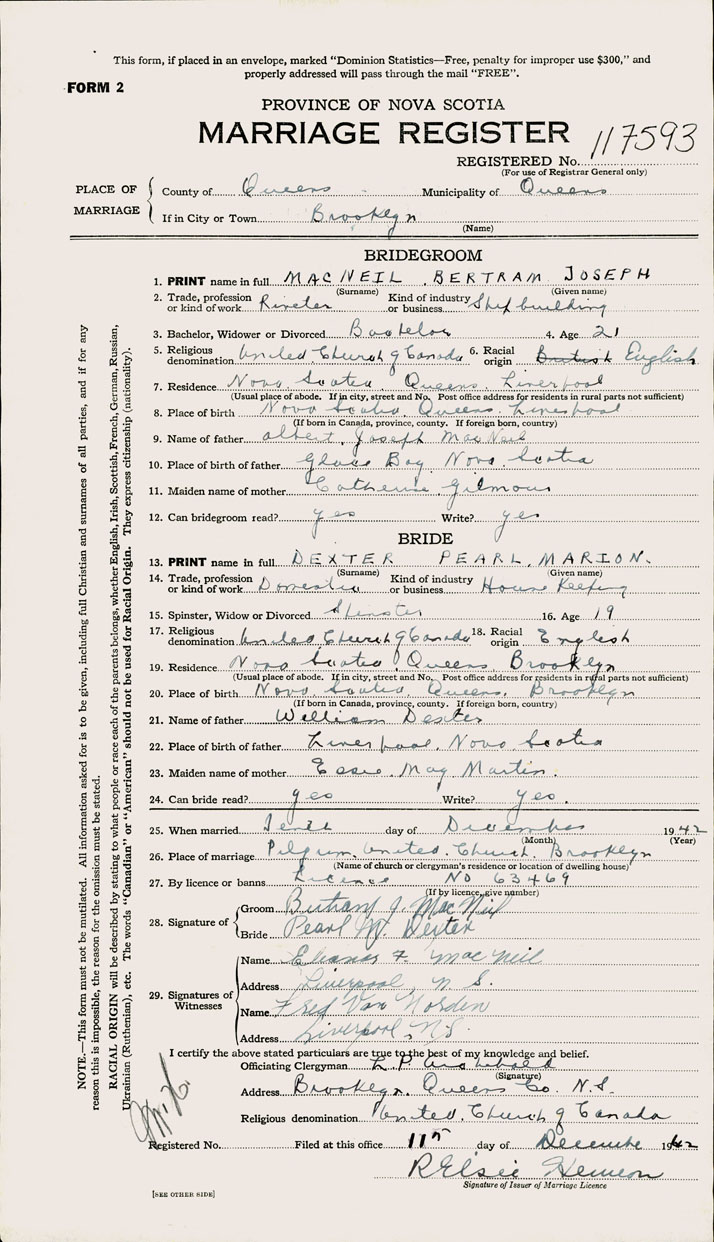 This form, if placed in an envelope, marked "Dominion Statistics—Free, penalty for improper use $300," and
properly addressed will pass through the mail "FREE".
FORM 2
PROVINCE OF NOVA SCOTIA
MARRIAGE REGISTER
REGISTERED No. 117593
(For use of Registrar General only)
PLACE OF MARRIAGE
County of Queens Municipality of Queens
If in City or Town Brooklyn
(Name)
BRIDEGROOM
1. PRINT name in full MACNEIL BERTRAM JOSEPH
(Surname) (Given name)
2. Trade, profession or kind of work Riveter Kind of industry or business Ship building
3. Bachelor, Widower or Divorced Bachelor 4. Age 21
5. Religious denomination United Church of Canada 6. Racial origin British English
7. Residence Nova Scotia, Queens, Liverpool
(Usual place of abode. If in city, street and No. Post office address for residents in rural parts not sufficient)
8. Place of birth Nova Scotia, Queens, Liverpool
(If born in Canada, province, county. If foreign born, country)
9. Name of father Albert Joseph MacNeil
10. Place of birth of father Glace Bay Nova Scotia
11. Maiden name of mother Catherine Gilmour
12. Can bridegroom read? yes Write? yes
BRIDE
13. PRINT name in full DEXTER PEARL MARION.
(Surname) (Given name)
14. Trade, profession or kind of work Domestic Kind of industry or business House Keeping
15. Spinster, Widow or Divorced Spinster 16. Age 19
17. Religious denomination United Church of Canada 18. Racial origin English
19. Residence Nova Scotia, Queens, Brooklyn
(Usual place of abode. If in city, street and No. Post office address for residents in rural parts not sufficient)
20. Place of birth Nova Scotia, Queens, Brooklyn
(If born in Canada, province, county. If foreign born, country)
21. Name of father William Dexter
22. Place of birth of father Liverpool, Nova Scotia
23. Maiden name of mother Essie May Martin.
24. Can bride read? yes Write? yes.
25. When married Tenth day of December 1942
(Month) (Year)
26. Place of marriage Pilgrim United Church, Brooklyn
(Name of church or clergyman's residence or location of dwelling house)
27. By licence or banns Licence No 63469
(If by licence, give number)
28. Signature of
Groom Bertram J. MacNeil
Bride Pearl M. Dexter
29. Signatures of Witnesses
Name Eleanor F. MacNeil
Address Liverpool, N.S.
Name Fred Van Norden
Address Liverpool, N.S.
I certify the above stated particulars are true to the best of my knowledge and belief.
Officiating Clergyman L. P. Archibald
(Signature)
Address Brooklyn, Queens Co. N.S.
Religious denomination United Church of Canada
Registered No. Filed at this office 11th day of December 1942
R Elsie Hemeon
Signature of Issuer of Marriage Licence
[SEE OTHER SIDE]
NOTE.—This form must not be mutilated. All information asked for is to be given, including full Christian and surnames of all parties, and if for any
reason this is impossible, the reason for the omission must be stated.
RACIAL ORIGIN will be described by stating to what people or race each of the parents belongs, whether English, Irish, Scottish, French, German, Russian,
Ukrainian (Ruthenian), etc. The words "Canadian" or "American" should not be used for Racial Origin. They express citizenship (nationality).